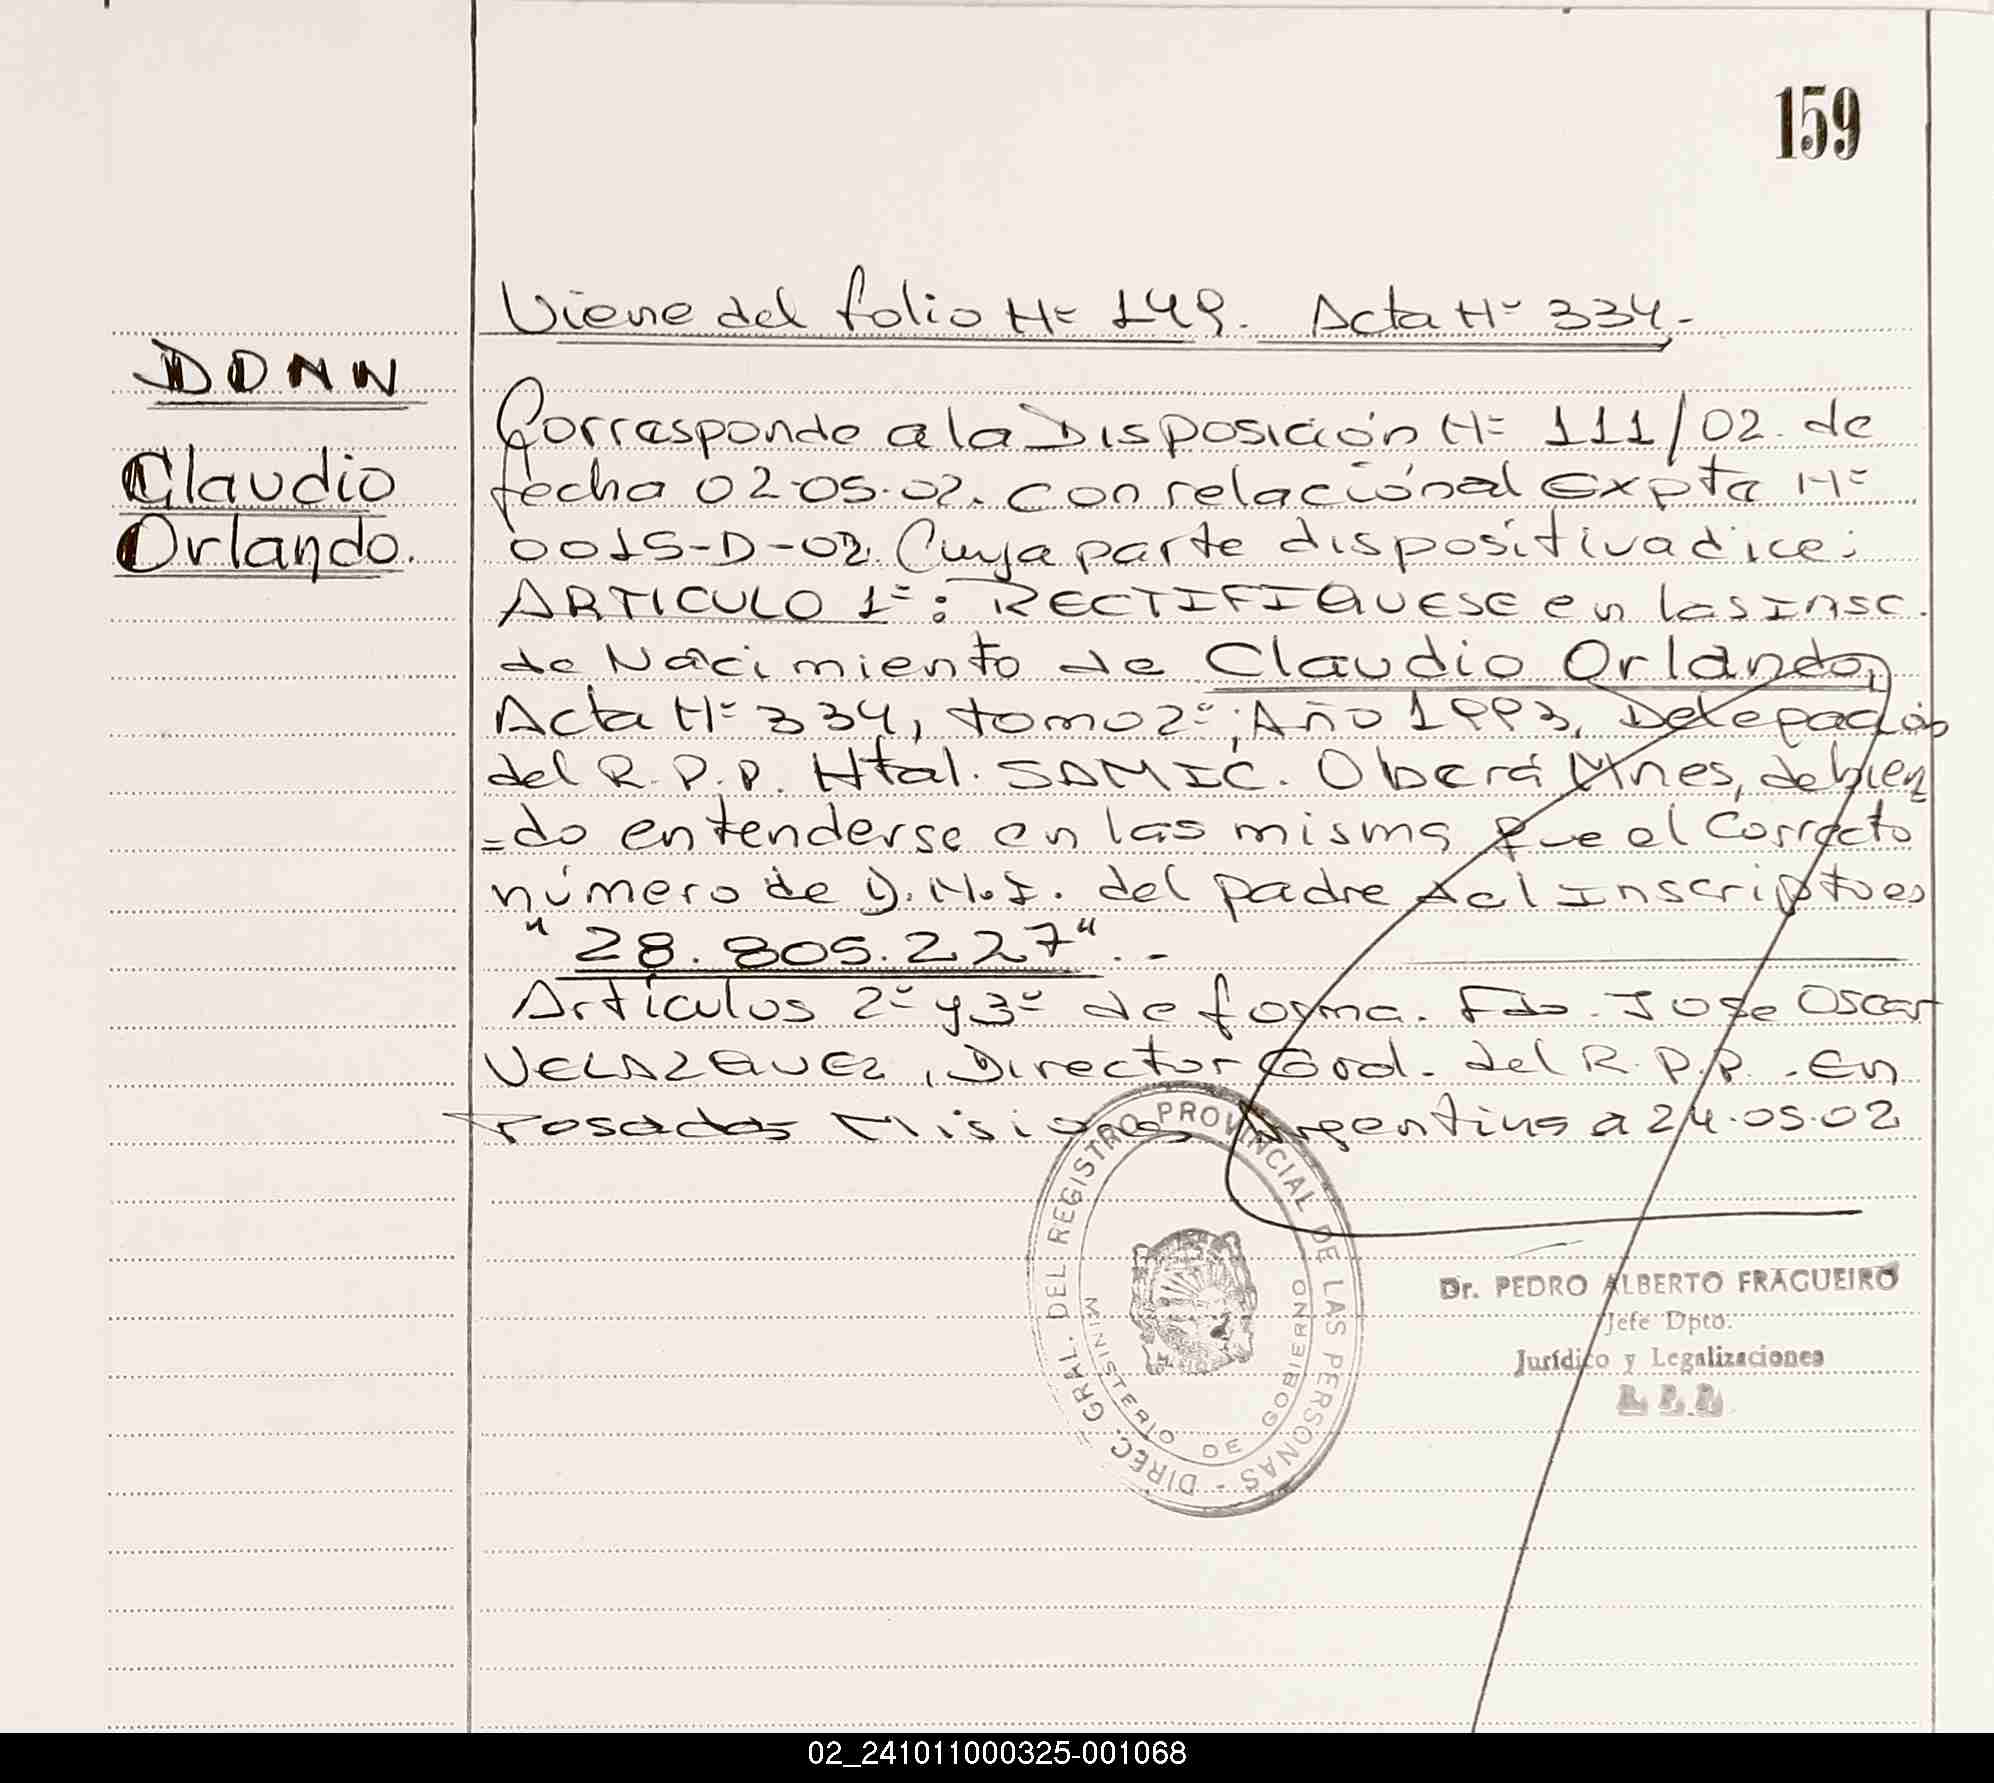 159
Viene del folio Nº 149. Acta Nº 334.-
DDNN
Claudio
Orlando.
Corresponde a la Disposición Nº 111/02. de
fecha 02-05-02. con relación al Expte Nº
0015-D-02. Cuya parte dispositiva dice:
ARTICULO 1º: RECTIFIQUESE en las insc.
de Nacimiento de Claudio Orlando,
Acta Nº 334, tomo 2º; Año 1993, Delegación
del R.P.P. Htal. SAMIC. Oberá Mnes, debien
=do entenderse en las misma que el Correcto
número de D.N.I. del padre del Inscripto es
"28.805.227".-
Artículos 2º y 3º de forma. Fdo. Jose Oscar
VELAZQUEZ, Director Gral. del R.P.P. En
Posadas Misiones Argentina a 24.05.02
DIREC. GRAL. DEL REGISTRO PROVINCIAL DE LAS PERSONAS -
MINISTERIO DE GOBIERNO
Dr. PEDRO ALBERTO FRAGUEIRO
Jefe Dpto.
Jurídico y Legalizaciones
R.P.P.
02_241011000325-001068